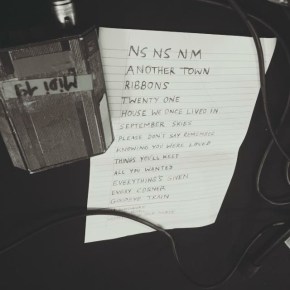 NS NS NM
ANOTHER TOWN
RIBBONS
TWENTY ONE
HOUSE WE ONCE LIVED IN
SEPTEMBER SKIES
PLEASE DON'T SAY REMEMBER
KNOWING YOU WERE LOVED
THINGS YOU'LL MISS
ALL YOU WANTED
EVERYTHING'S GIVEN
EVERY CORNER
GOODBYE TRAIN
MIDI